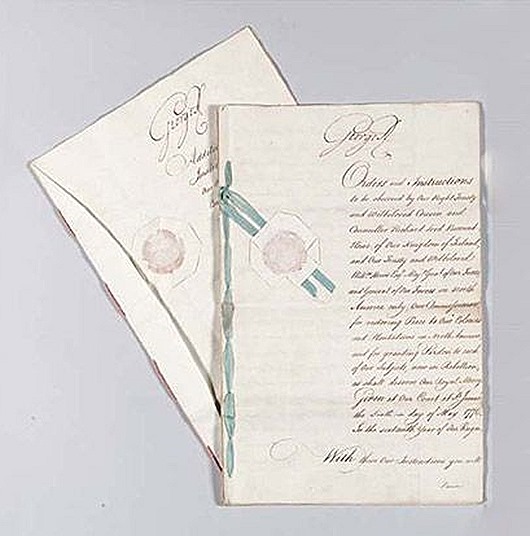 George R
Additi
Instru
George R.
Orders and Instructions
to be observed by Our Right Trusty
and Welbeloved Cousin and
Councillor Richard Lord Viscount
Howe of Our Kingdom of Ireland,
and Our Trusty and Welbeloved
Willm Howe Esqr Major Genl of Our Forces
and General of Our Forces in North
America only, Our Commissioners
for restoring Peace to Our Colonies
and Plantations in North America
and for granting Pardon to such
of Our Subjects, now in Rebellion,
as shall deserve Our Royal Mercy
Given at Our Court at St James's
the Sixth day of May 1776
In the sixteenth Year of Our Reign.
With these Our Instructions you will